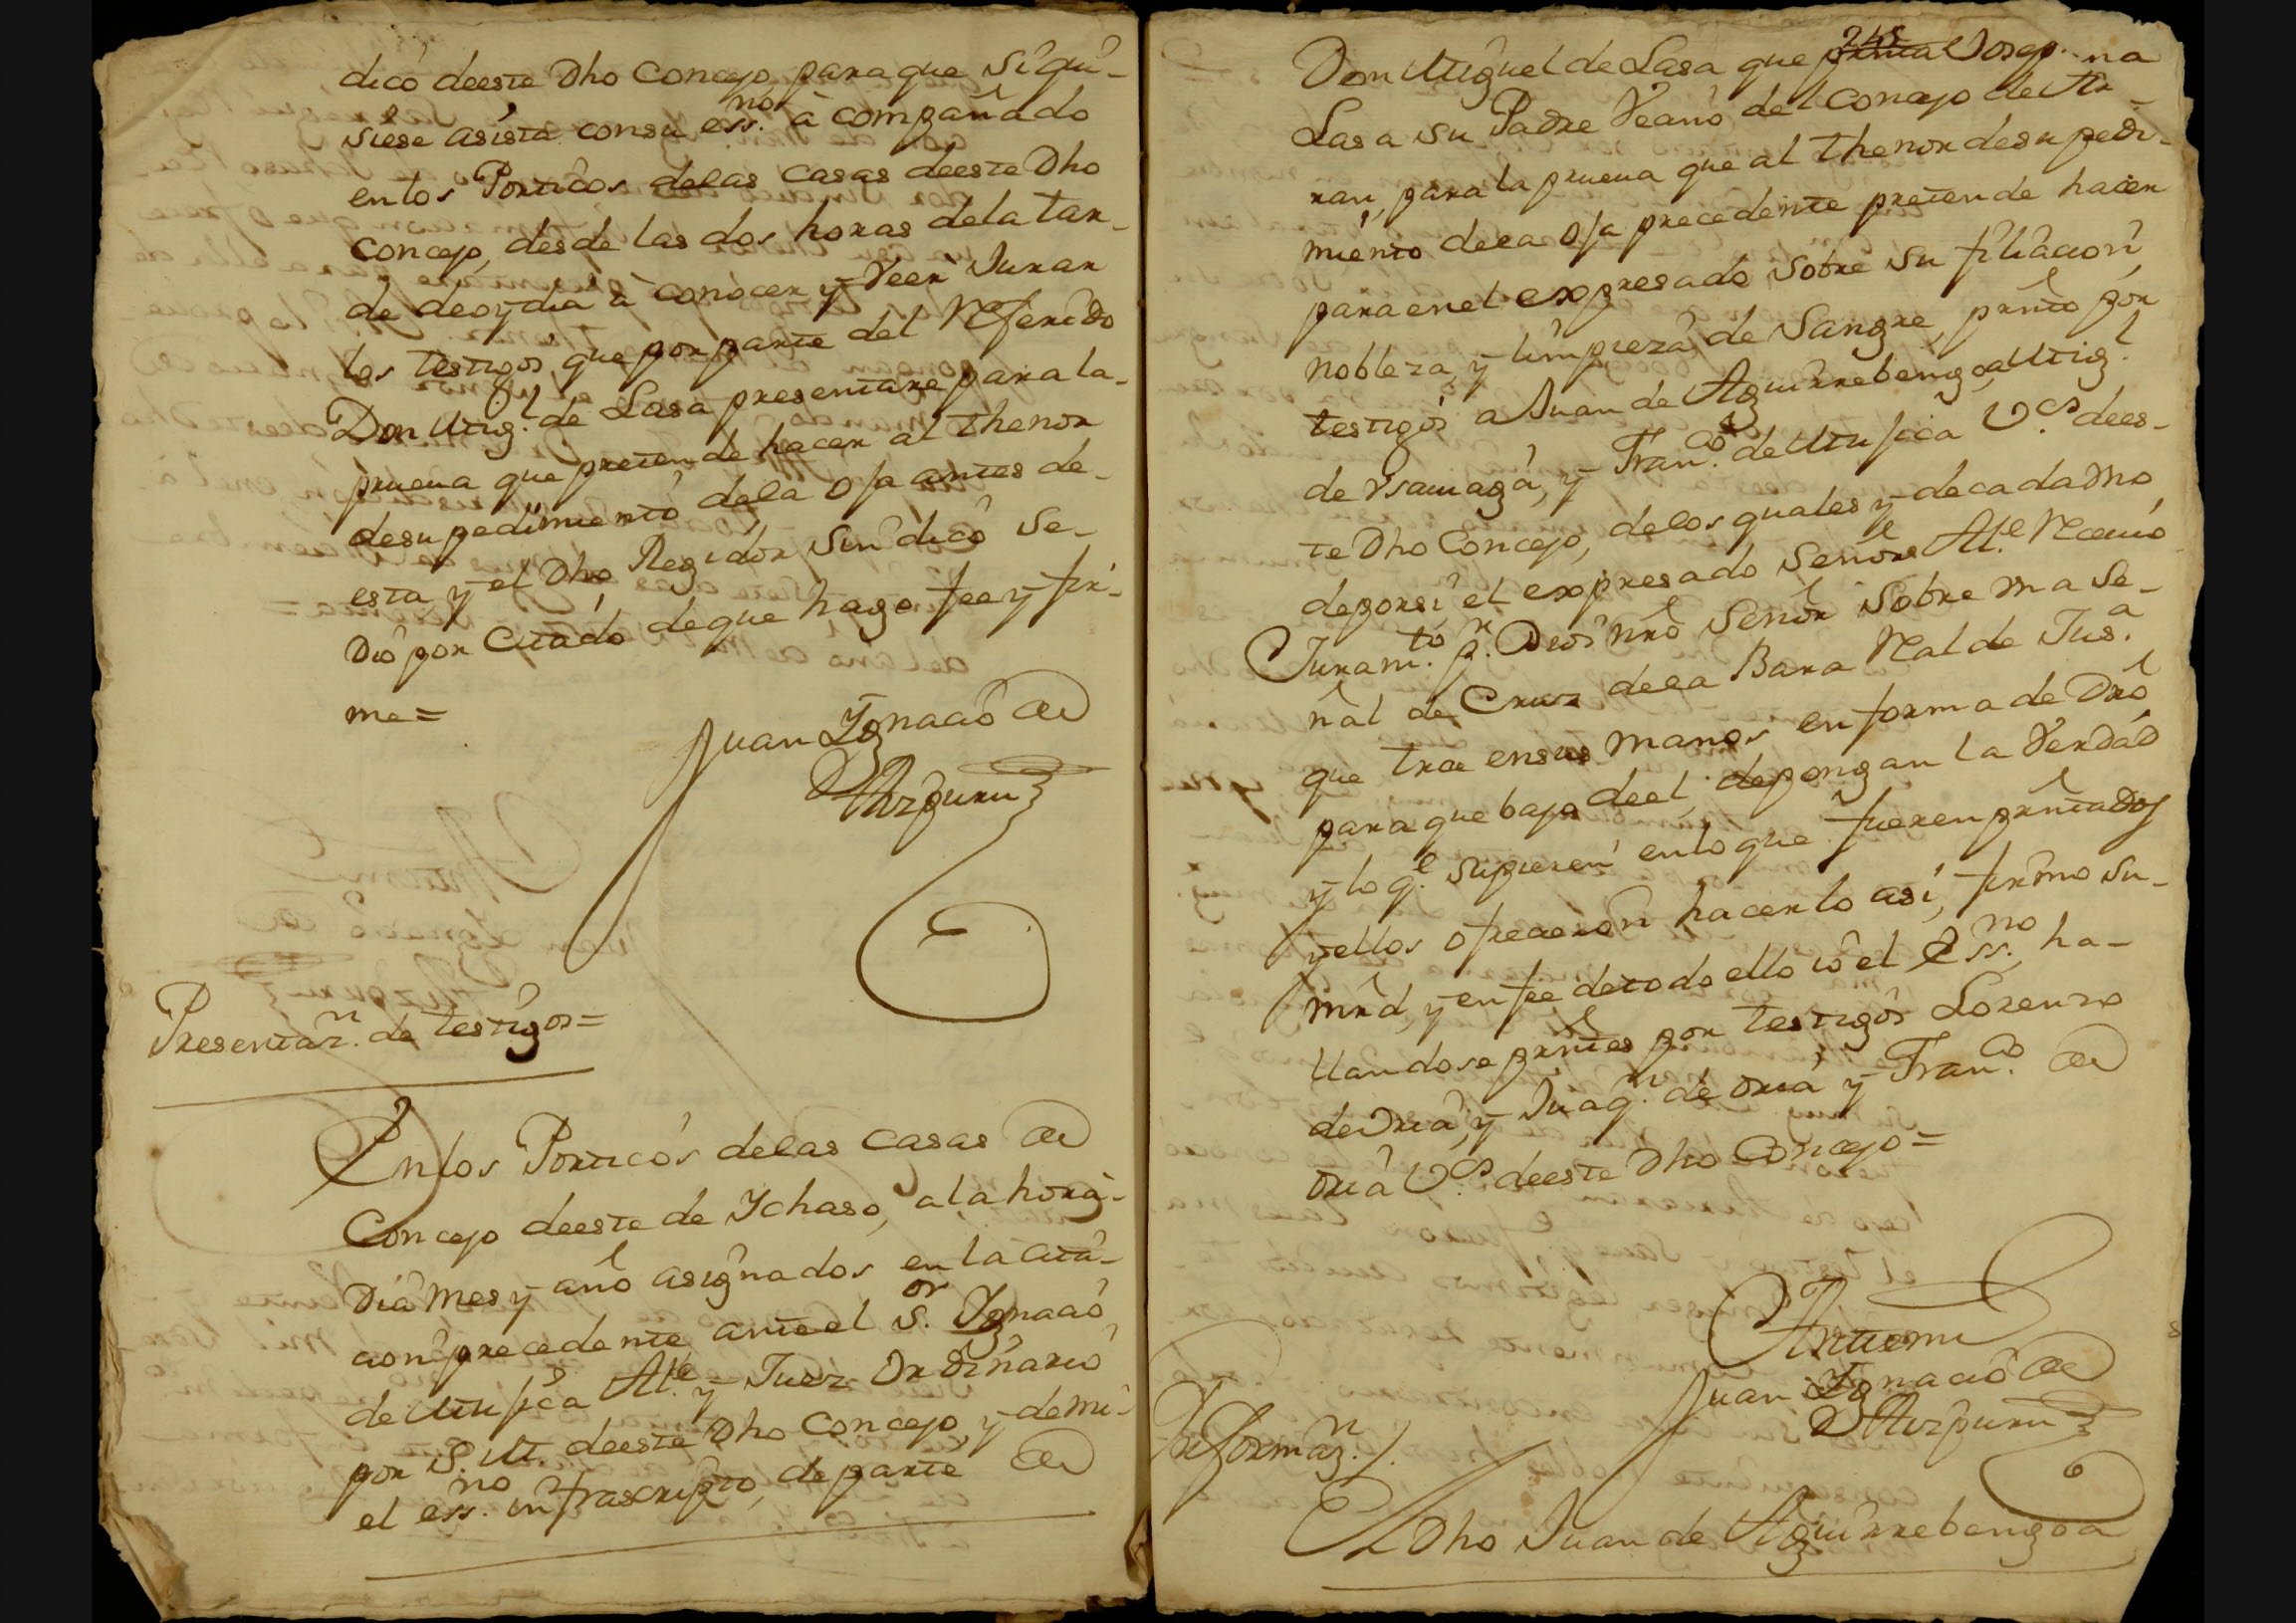 dico deeste Dho Concejo, para que si qui-
siese asista con su ess.no acompañado
en los Porticos delas casas deeste Dho
Concejo, desde las dos horas dela tar-
de deoy dia à conocer y Veer Jurar
los testigos que por parte del Referido
Don Mig.l de Lasa presentare para la-
prueua que pretende hacer al thenor
desu pedimiento dela oja antes de-
esta y el Dho Regidor sindico se-
Dio por Citado de que hago fee y fir-
me=
Juan Ygnacio de
Aizpuru
Presentaz.n de testigos=
En los Porticos delas casas de
Concejo deeste de Ychaso, a la hora-
Dia mes y año asignados en la cita-
cion precedente ante el S.or Ygnacio
de Mujica Al.e y Juez Ordinario
por S. M. deeste Dho Concejo, y de mi
el ess.no infrascripto, de parte de
245
Don Miguel de Lasa que Joseph
Lasa su Padre Vecino del Concejo de Ar-
ran, para la prueua que al thenor desu pedi-
miento dela oja precedente pretende hacer
para en el expresado sobre su filiacion,
nobleza, y limpieza de Sangre, prnto por
testigos a Juan de Aguirrebengoa, Mig.l
de Ysamaga, y Fran.co de Mujica V.os dees-
te Dho Concejo, delos quales y de cada Uno
depor si el expresado Señor Al.e Receuio
Juram.to p.r Dios nro Señor sobre una Se-
ñal de Cruz dela Bara Real de Jus.a
que trae en sus manos, en forma de Dro
para que bajo de el, depongan la Verdad
y lo q.e supieren en lo que fueren prntados
y ellos ofrecieron hacerlo asi, firmo su-
mrd, y en fee de todo ello io el Ess.no ha-
llandose prntes por testigos Lorenzo
de Oria, y Juaq.n de oria y Fran.co de
oria V.os deeste Dho Concejo=
Antemi
Juan Ygnacio de
Aizpuru
Informaz.n /.
El Dho Juan de Aguirrebengoa